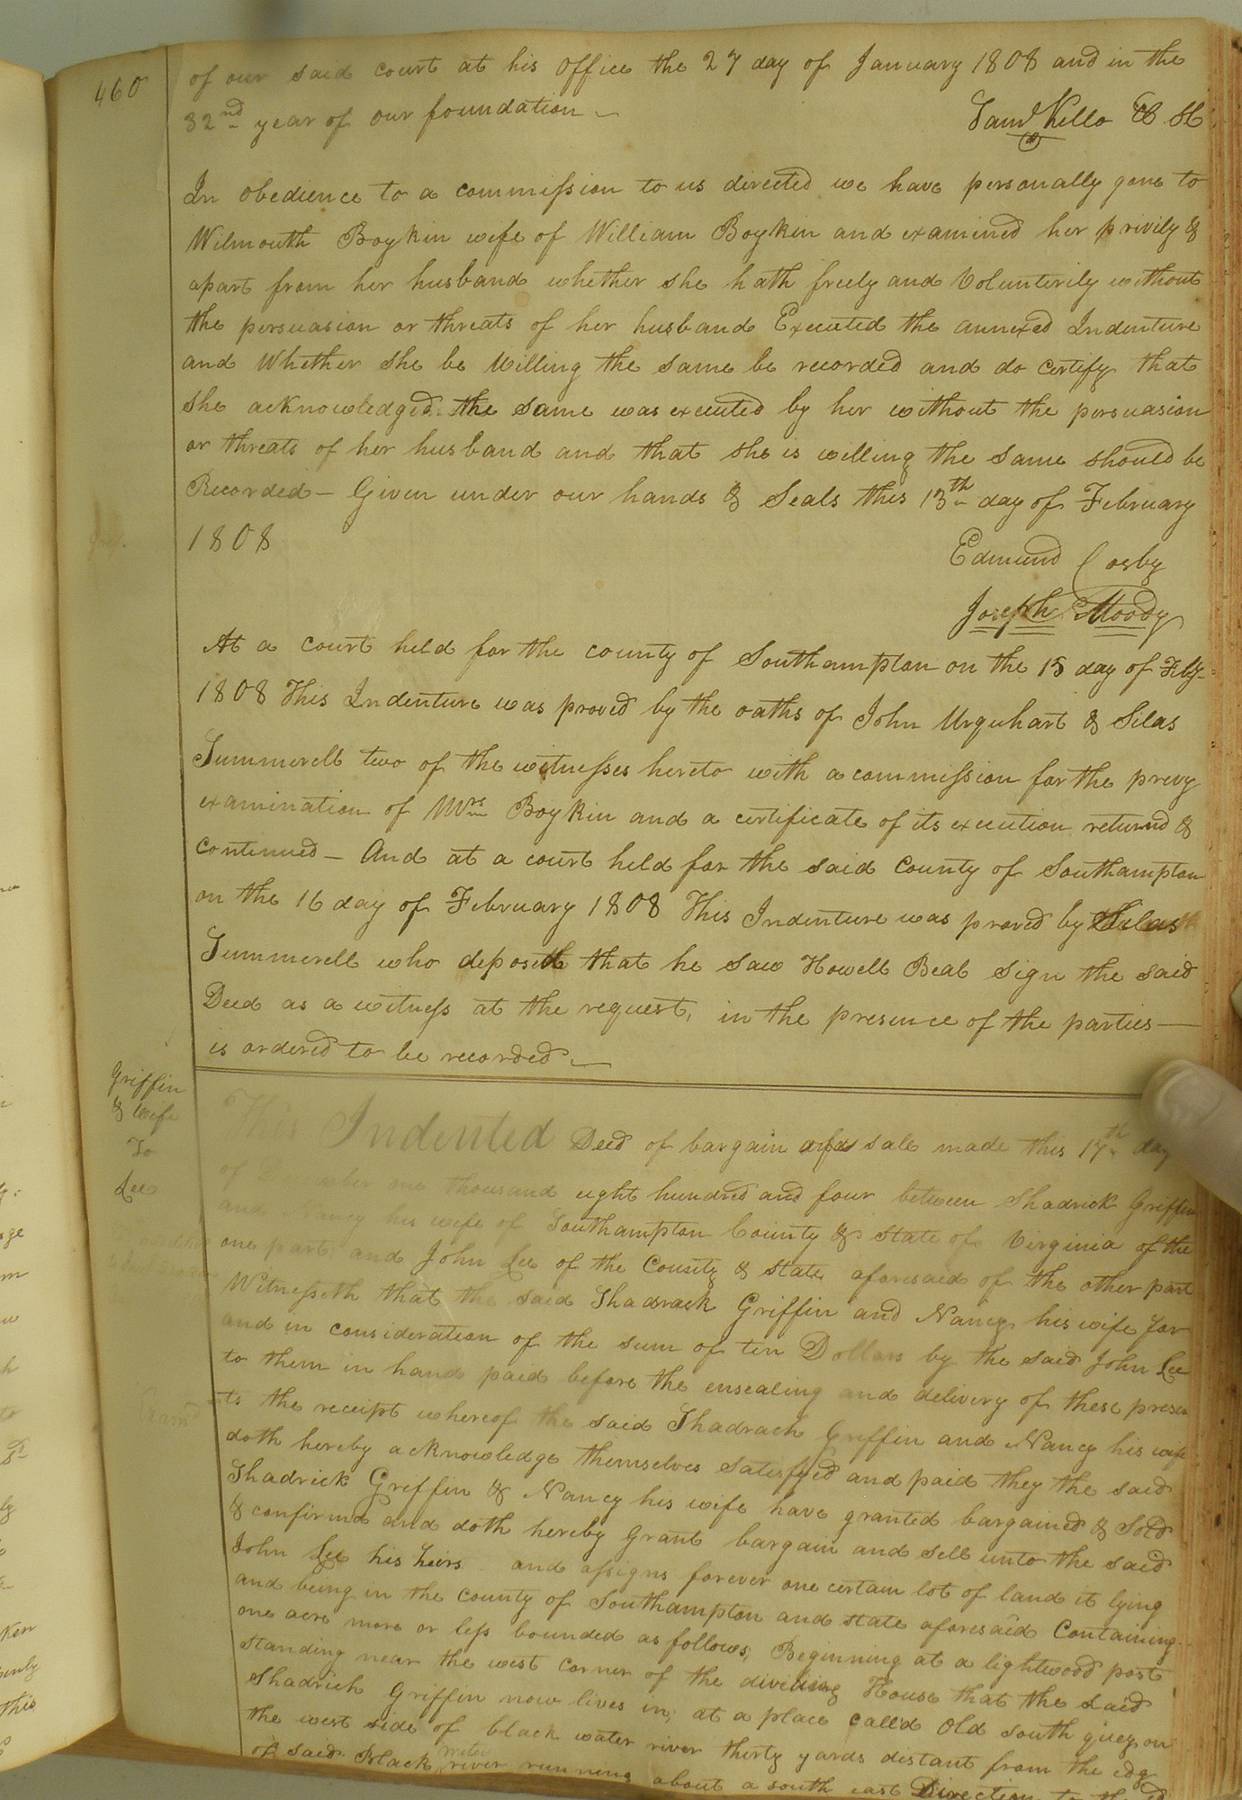 460
of our said court at his office the 27 day of January 1808 and in the
32nd year of our foundation
Saml Kello
In obedience to a commission to us directed we have personally gone to
Wilmouth Boykin wife of William Boykin and examined her privily &
apart from her husband whether she hath freely and Volunterily without
the persuasion or threats of her husband Executed the annexed Indenture
and Whether she be Willing the same be recorded and do certify that
she acknowledged the same was executed by her without the persuasion
or threats of her husband and that she is willing the same should be
Recorded - Given under our hands & Seals this 13th day of February
1808
Edmund Cosby
Joseph Moody
At a court held for the county of Southampton on the 15 day of Feby
1808 This Indenture was proved by the oaths of John Urquhart & Silas
Summerell two of the witnesses hereto with a commission for the prevy
examination of Mrs Boykin and a certificate of its execution returnd &
continued - And at a court held for the said County of Southampton
on the 16 day of February 1808 This Indenture was proved by Silas
Summerell who deposeth that he saw Howell Beal sign the said
Deed as a witness at the request, in the presence of the parties -
is ordered to be recorded -
Griffin
& Wife
To
Lee
This Indented Deed of bargain sale made this 17th day
of one thousand eight hundred and four between Shadrick Griffin
and Nancy his wife of Southampton County & State of Verginia of the
one part and John Lee of the County & state aforesaid of the other part
Witnesseth that the said Shadrack Griffin and Nancy his wife for
and in consideration of the sum of ten Dollars by the said John Lee
to them in hand paid before the ensealing and delivery of these presen
ts the receipt whereof the said Shadrach Griffin and Nancy his wife
doth hereby acknowledge themselves satisfyed and paid they the said
Shadrick Griffin & Nancy his wife have granted bargained & Sold
& confirmd and doth hereby grant bargain and sell unto the said
John Lee his heirs and assigns forever one certain lot of land it lying
and being in the county of Southampton and state aforesaid Containing
one acre more or less bounded as follows, Beginning at a lightwood post
standing near the west corner of the dividing House that the said
Shadrich Griffin now lives in, at a place calld Old South quay on
the west side of black water river thirty yards distant from the edg
of said Black water river running about a south east Direction to the